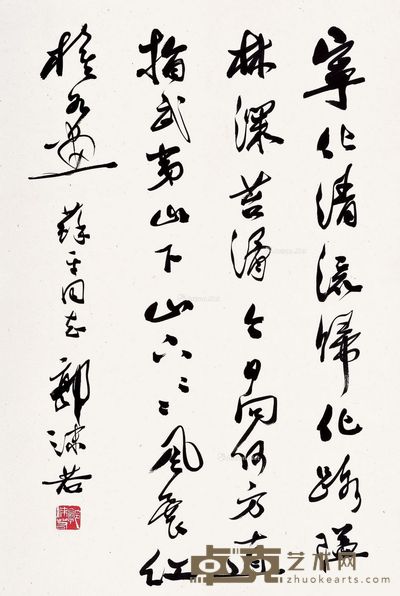 寧化清流歸化路隘
林深苔滑今日向何方直
指武夷山下山下〻〻風展红
旗如画
蘇平同志 郭沫若
卓克艺术网
zhuokearts.com